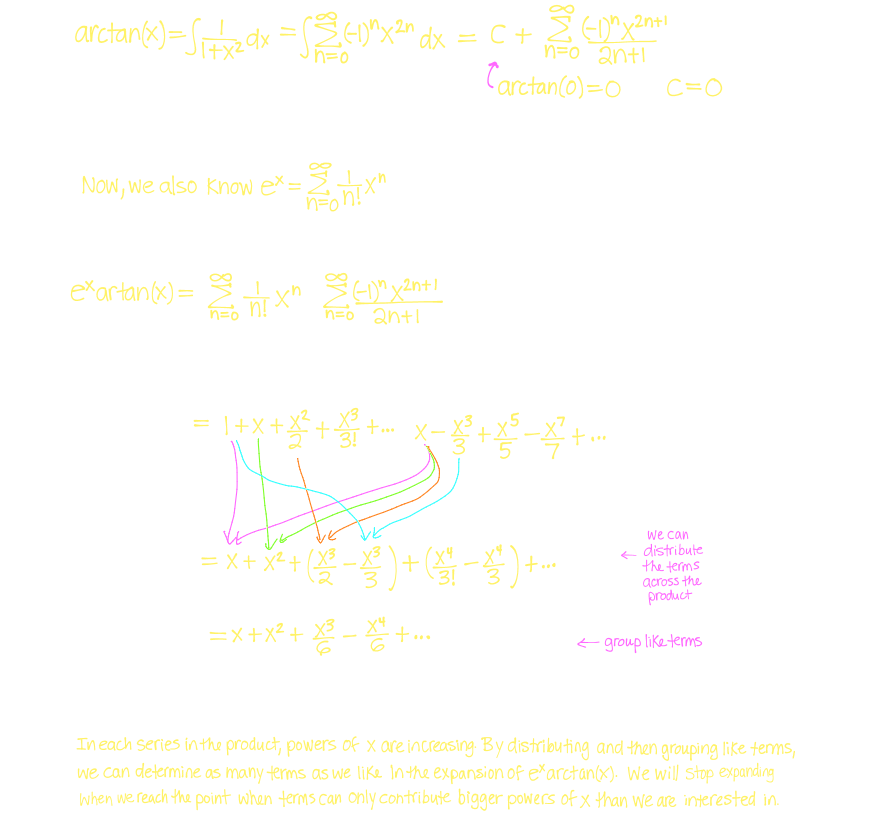 arctan(x) = ∫ 1/(1+x²) dx = ∫ ∑_{n=0}^{∞} (-1)ⁿ x²ⁿ dx = C + ∑_{n=0}^{∞} (-1)ⁿ x²ⁿ⁺¹/(2n+1)
arctan(0)=0 C=0
Now, we also know eˣ = ∑_{n=0}^{∞} 1/n! xⁿ
eˣ artan(x) = ∑_{n=0}^{∞} 1/n! xⁿ ∑_{n=0}^{∞} (-1)ⁿ x²ⁿ⁺¹/(2n+1)
= 1 + x + x²/2 + x³/3! + ... x - x³/3 + x⁵/5 - x⁷/7 + ...
= x + x² + (x³/2 - x³/3) + (x⁴/3! - x⁴/3) + ...
← we can
distribute
the terms
across the
product
= x + x² + x³/6 - x⁴/6 + ...
← group like terms
In each series in the product, powers of x are increasing. By distributing and then grouping like terms,
we can determine as many terms as we like in the expansion of eˣ arctan(x). We will stop expanding
when we reach the point when terms can only contribute bigger powers of x than we are interested in.